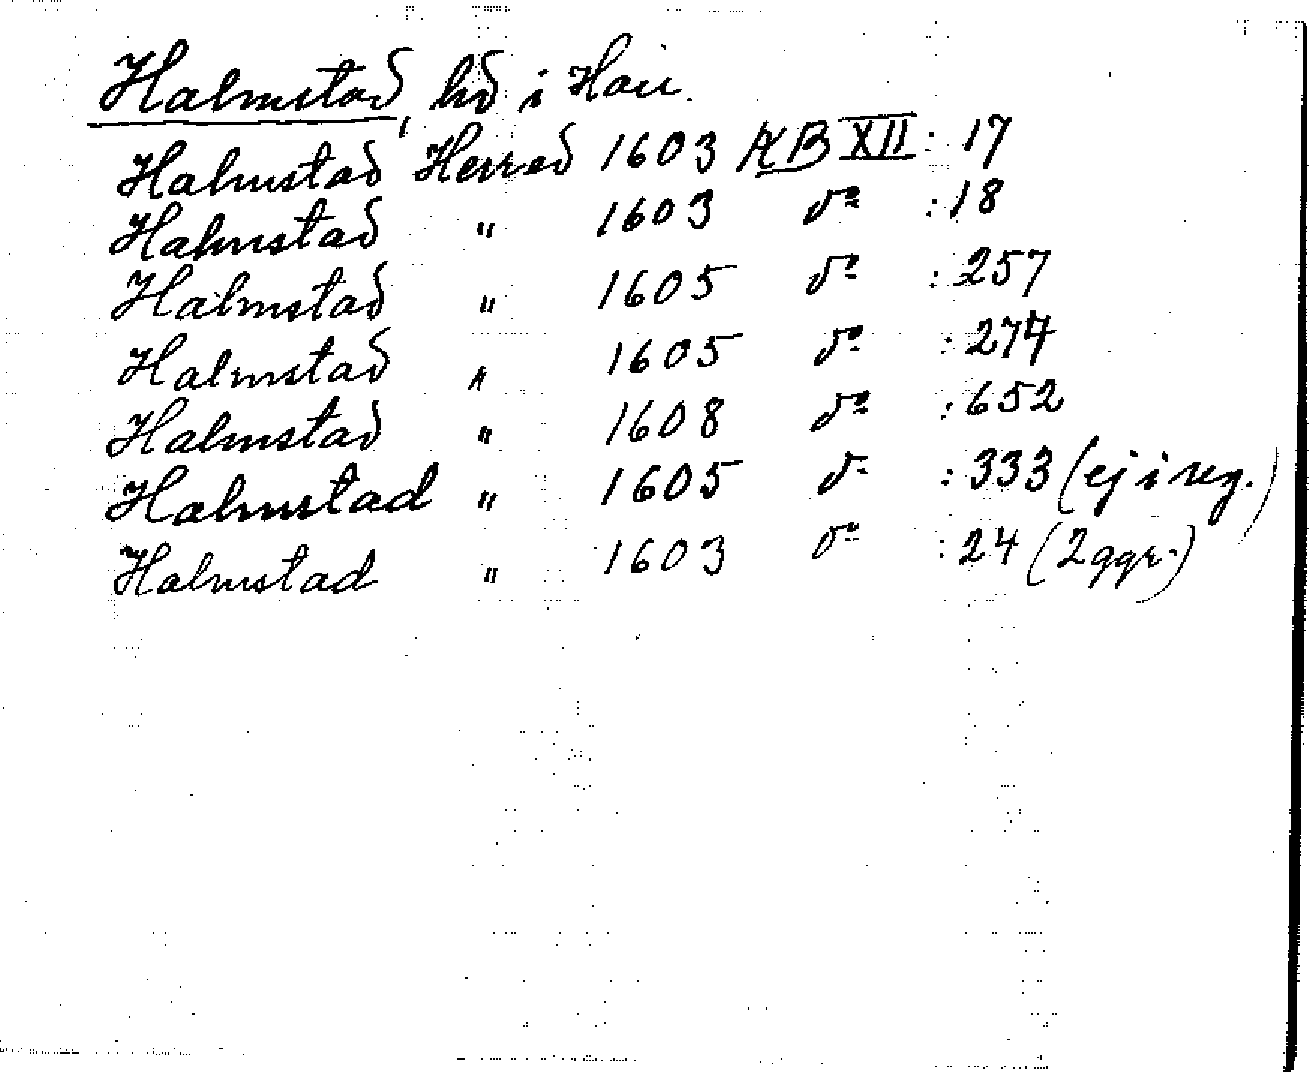 Halmstad, hd i Hall.
Halmstad Herred 1603 KB XII: 17
Halmstad " 1603 do : 18
Halmstad " 1605 do : 257
Halmstad " 1605 do : 274
Halmstad " 1608 do : 652
Halmstad " 1605 do : 333 (ej i reg.)
Halmstad " 1603 do : 24 (2 ggr.)